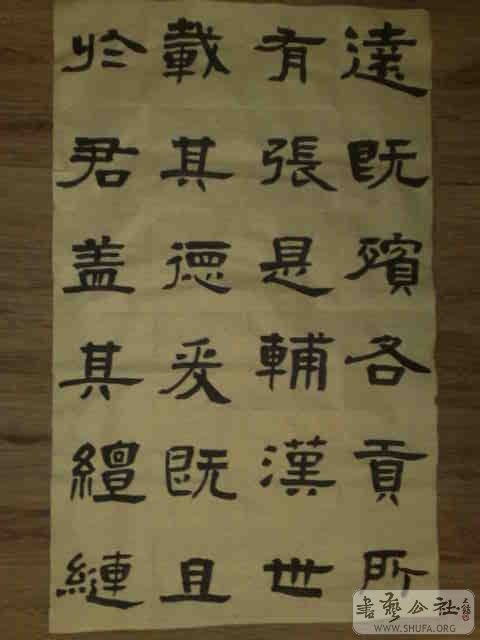 遠既殯各貢所
有張是輔漢世
載其德爰既且
於君盖其繵縺
書藝公社
WWW.SHUFA.ORG